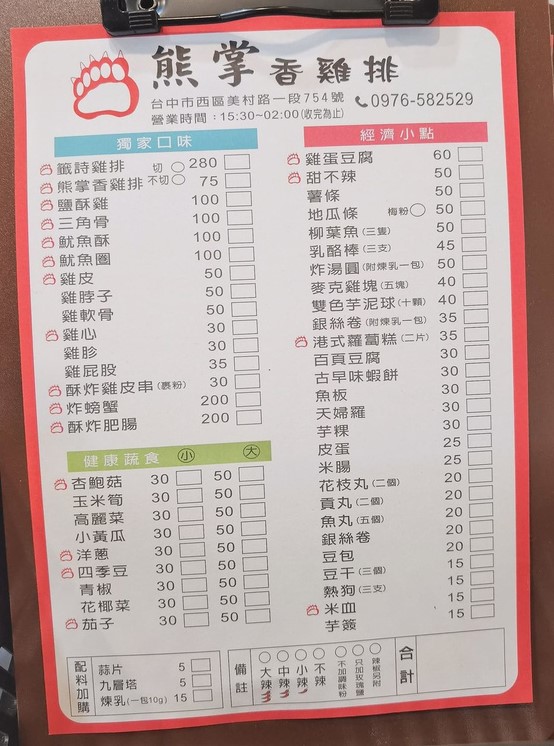 熊掌香雞排
台中市西區美村路一段754號
營業時間：15:30~02:00(收完為止)
0976-582529
獨家口味
籤詩雞排 切 280
熊掌香雞排 不切 75
鹽酥雞 100
三角骨 100
魷魚酥 100
魷魚圈 100
雞皮 50
雞脖子 50
雞軟骨 50
雞心 30
雞胗 30
雞屁股 35
酥炸雞皮串(裹粉) 30
炸螃蟹 200
酥炸肥腸 200
健康蔬食 小 大
杏鮑菇 30 50
玉米筍 30 50
高麗菜 30 50
小黃瓜 30 50
洋蔥 30 50
四季豆 30 50
青椒 30 50
花椰菜 30 50
茄子 30 50
經濟小點
雞蛋豆腐 60
甜不辣 50
薯條 50
地瓜條 梅粉 50
柳葉魚(三隻) 50
乳酪棒(三支) 45
炸湯圓(附煉乳一包) 50
麥克雞塊(五塊) 40
雙色芋泥球(十顆) 40
銀絲卷(附煉乳一包) 35
港式蘿蔔糕(二片) 35
百頁豆腐 30
古早味蝦餅 30
魚板 30
天婦羅 30
芋粿 30
皮蛋 25
米腸 25
花枝丸(二個) 20
貢丸(二個) 20
魚丸(五個) 20
銀絲卷 20
豆包 20
豆干(三個) 15
熱狗(三支) 15
米血 15
芋簽 15
配料加購
蒜片 5
九層塔 5
煉乳(一包10g) 15
備註
大辣
中辣
小辣
不辣
不加調味粉
只加玫瑰鹽
辣椒另附
合計